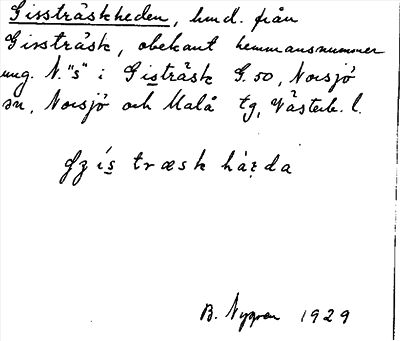 Gissträskheden, hmd. från
Gissträsk, obekant hemmansnummer
ung. N. "s" i Gisträsk G. 50, Norsjö
sn, Norsjö och Malå tg, Västerb. l.
træsk
B. Nygren 1929